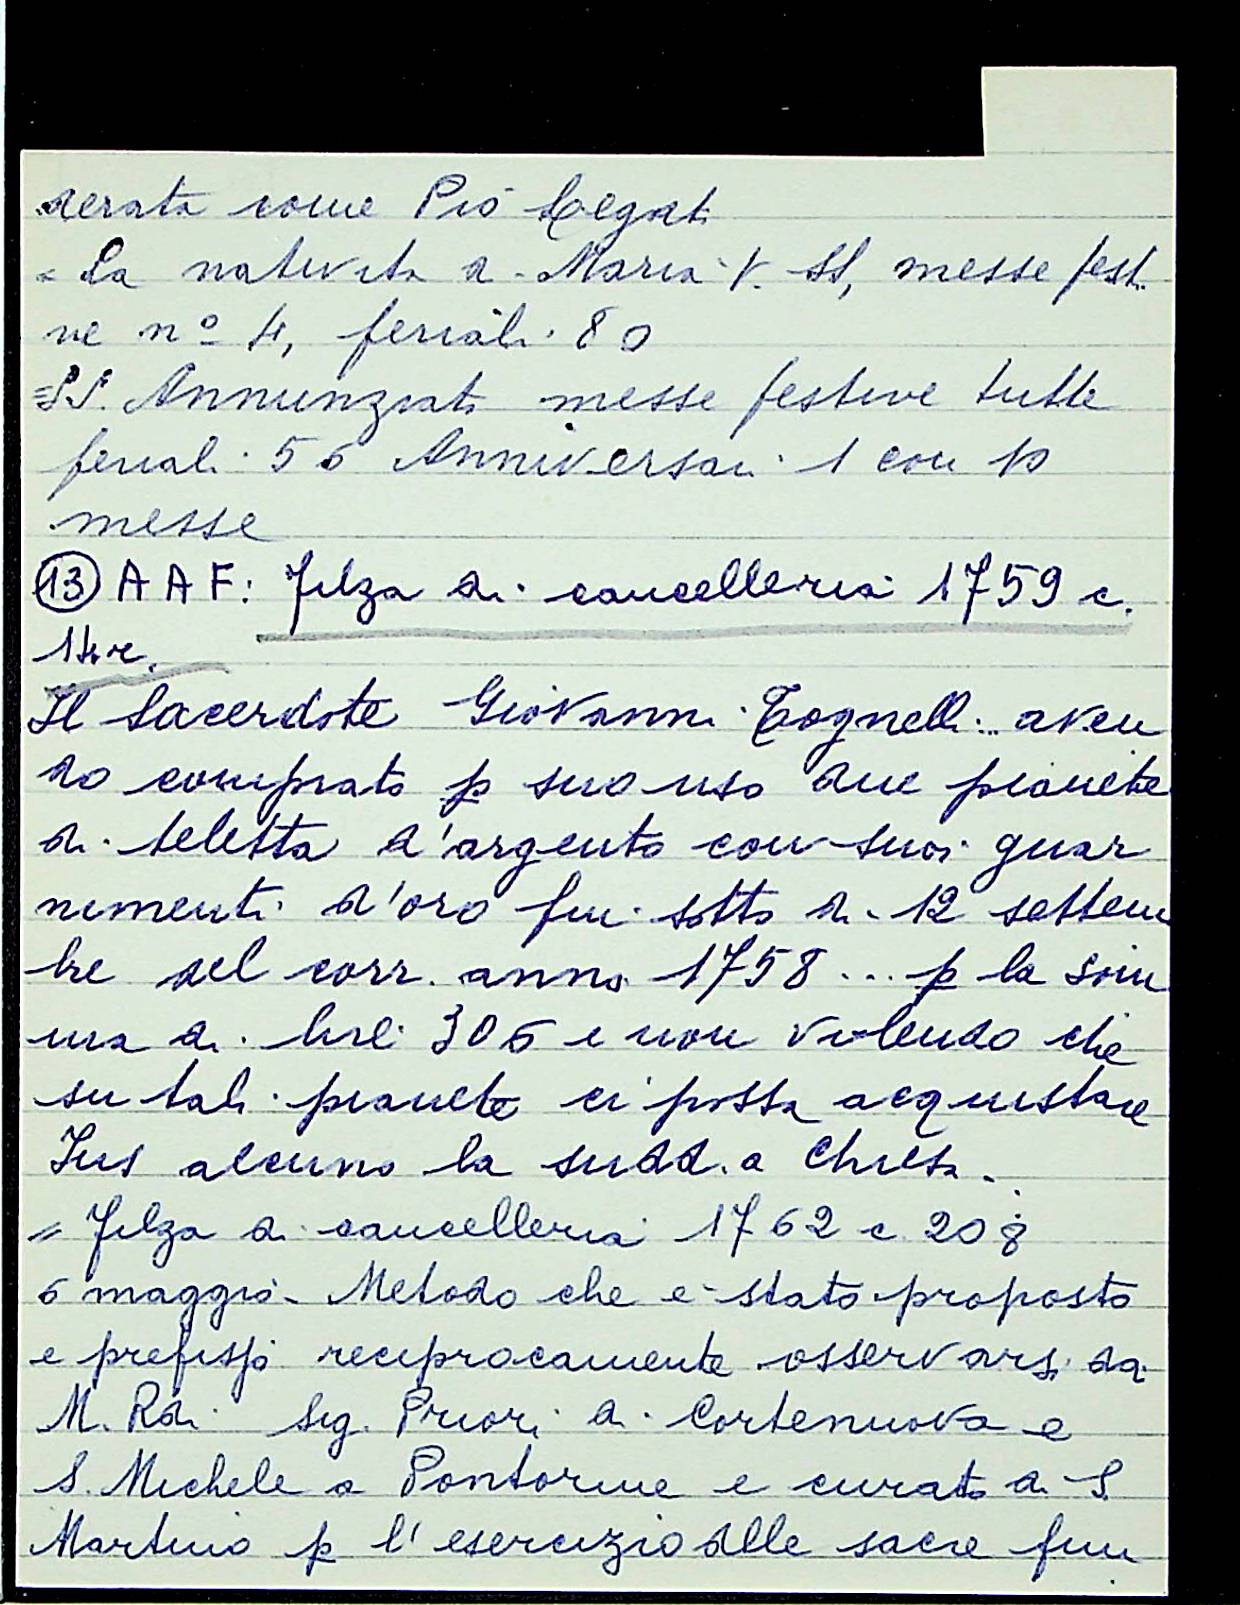 derata come Pio Legat.
= La natività di Maria V. SS, messe festi
ve nº 4, feriali 80
= SS. Annunziata messe festive tutte
feriali 56 Anniversari 1 con 10
messe
(13) AAF: Filza di cancelleria 1759 c.
14r.
Il Sacerdote Giovanni Tognelli.. aven
do comprato p suo uso due pianete
di teletta d'argento con suoi guar
nimenti d'oro fin sotto di 12 settem
bre del corr. anno 1758... p la som
ma di lire 306 e non volendo che
su tali pianete ci possa acquistare
Jus alcuno la sudd.a Chiesa.
= Filza di cancelleria 1762 c. 208
6 maggio - Metodo che è stato proposto
e prefisso reciprocamente osservarsi da
M. Rdi Sig. Priori di Cortenuova e
S. Michele a Pontorme e curato di S.
Martino p l'esercizio delle sacre fun